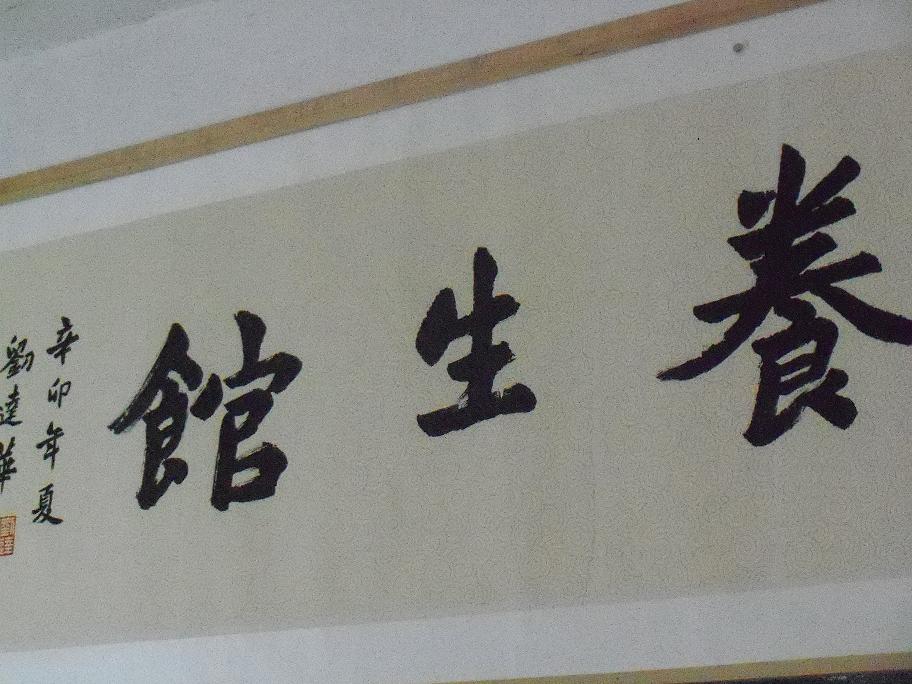 養生館
辛卯年夏
劉達華